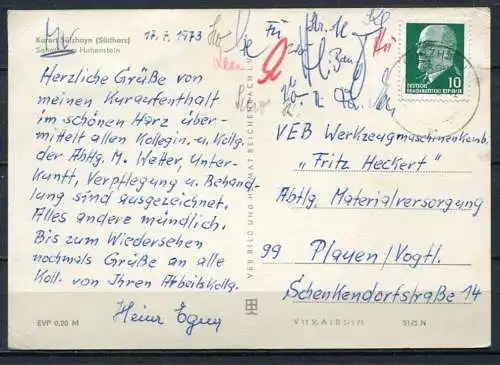 Kurort Sülzhayn (Südharz)
Sanatorium Hohenstein
17.7.1973
Herzliche Grüße von
meinen Kuraufenthalt
im schönen Harz über-
mittelt allen Kollegin. u. Kollg.
der Abtlg. M. Wetter, Unter-
kunft, Verpflegung u. Behand-
lung sind ausgezeichnet.
Alles andere mündlich.
Bis zum Wiedersehen
nochmals Grüße an alle
Koll. von Ihren Arbeitskollg.
Heinz
EVP 0,20 M
VEB BILD UND HEIMAT REICHENBACH I. V.
10
DEUTSCHE
DEMOKRATISCHE REPUBLIK
VEB Werkzeugmaschinenkomb.
„Fritz Heckert"
Abtlg. Materialversorgung
99 Plauen/Vogtl.
Schenkendorfstraße 14